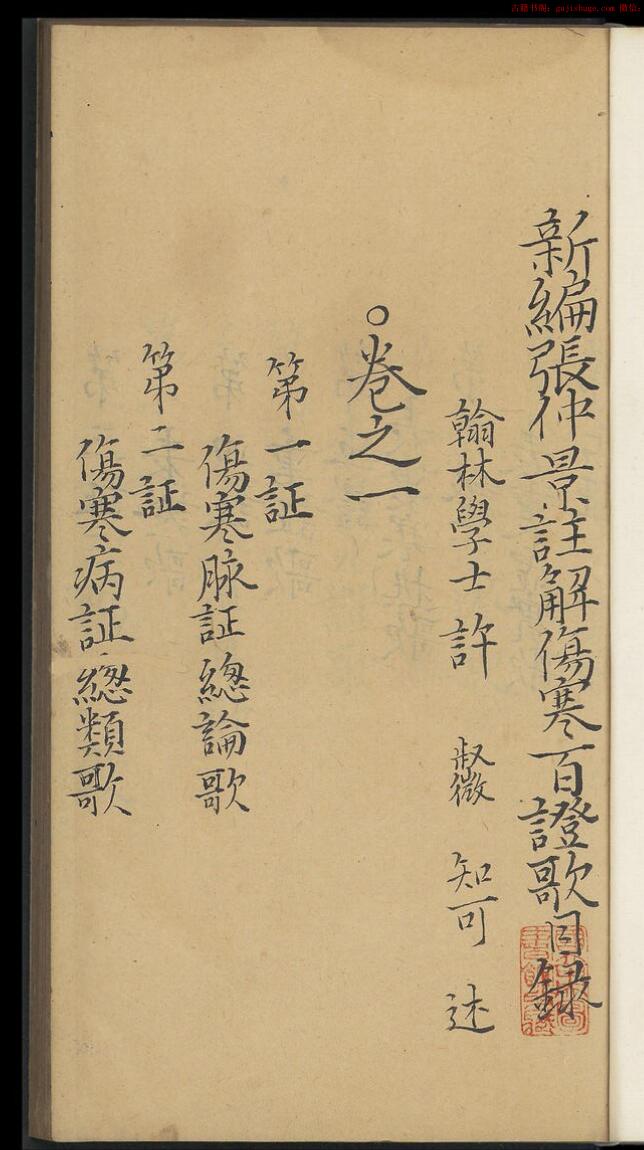 古籍书阁：gujishuge.com 微信：
新編張仲景註解傷寒百證歌目錄
翰林學士許 叔微 知可 述
○卷之一
第一証
傷寒脉証總論歌
第二証
傷寒病証總類歌